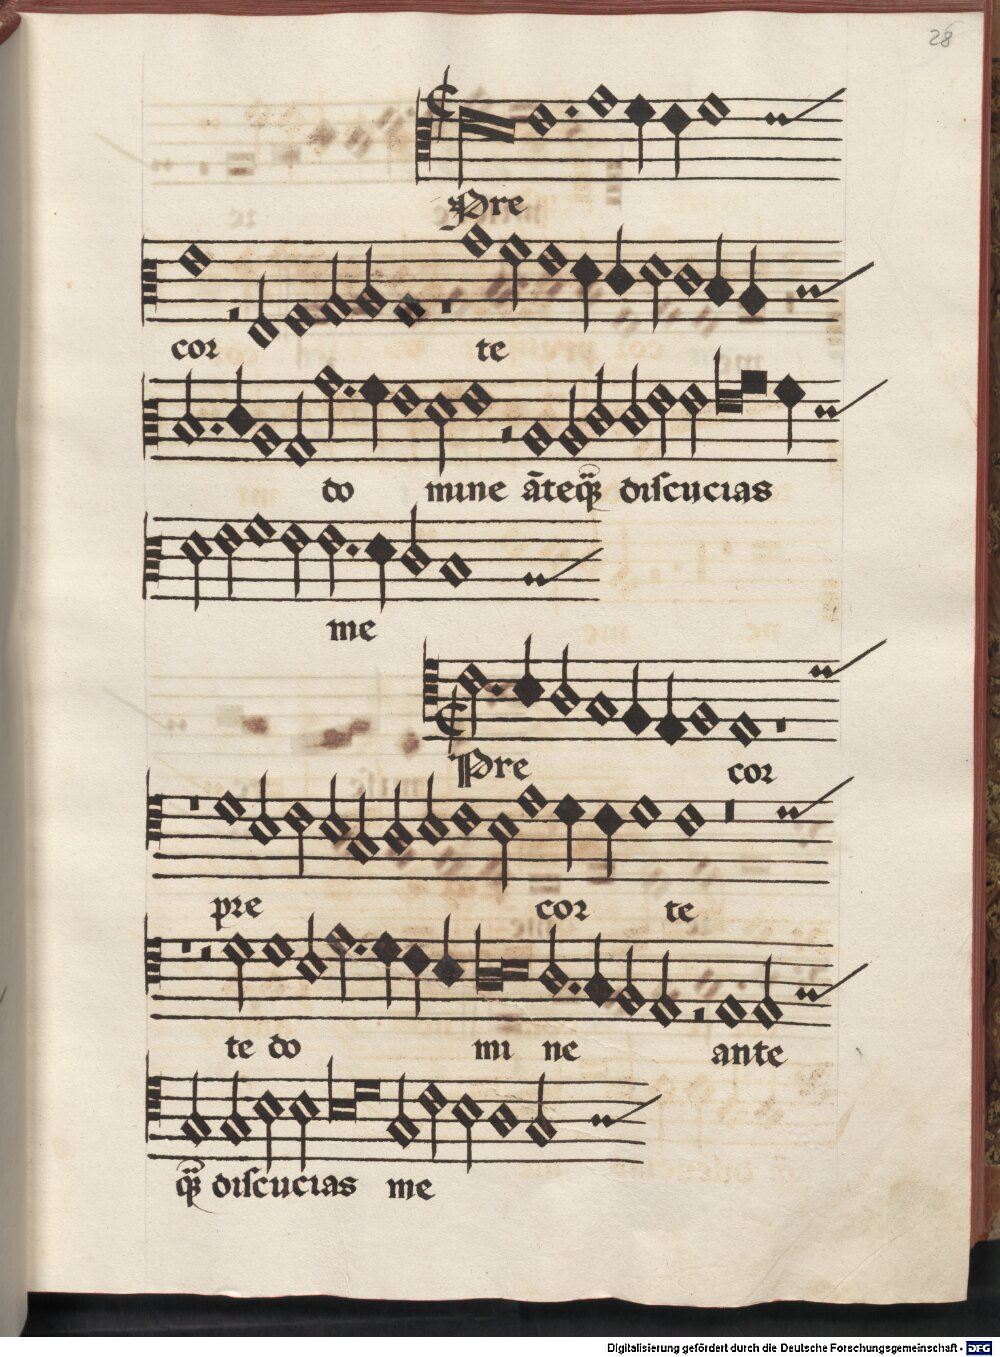 28
Pre
cor te
do mine ãteq̃ꝫ discucias
me
Pre cor
pre cor te
te do mi ne ante
q̃ꝫ discucias me
Digitalisierung gefördert durch die Deutsche Forschungsgemeinschaft - DFG